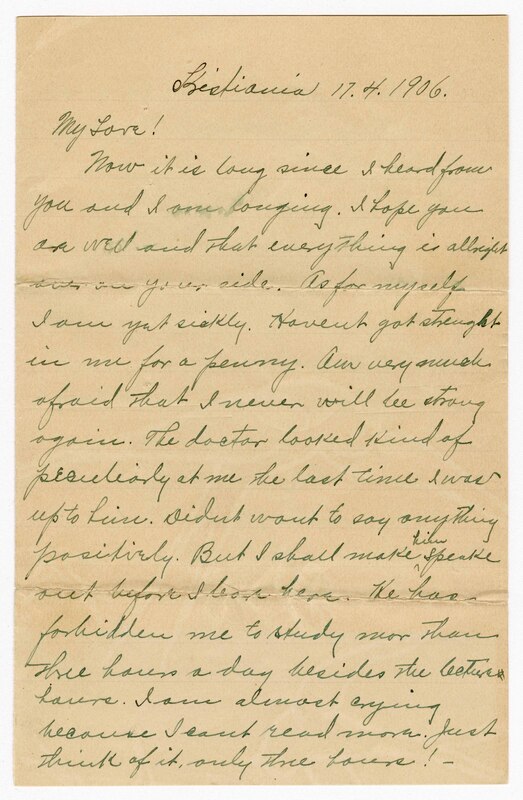 Kristiania 17.4.1906.
My Love!
Now it is long since I heard from
you and I am longing. I hope you
are well and that everything is allright
over on your side. As for myself
I am yet sickly. Havent got strenght
in me for a penny. Am very much
afraid that I never will be strong
again. The doctor looked kind of
peculiarly at me the last time I was
up to him. Didnt want to say anything
positively. But I shall make him speake
out before I leave here. He has
forbidden me to study mor than
thre hours a day besides the lecture
hours. I am almost crying
because I cant read more. Just
think of it, only thre hours! -